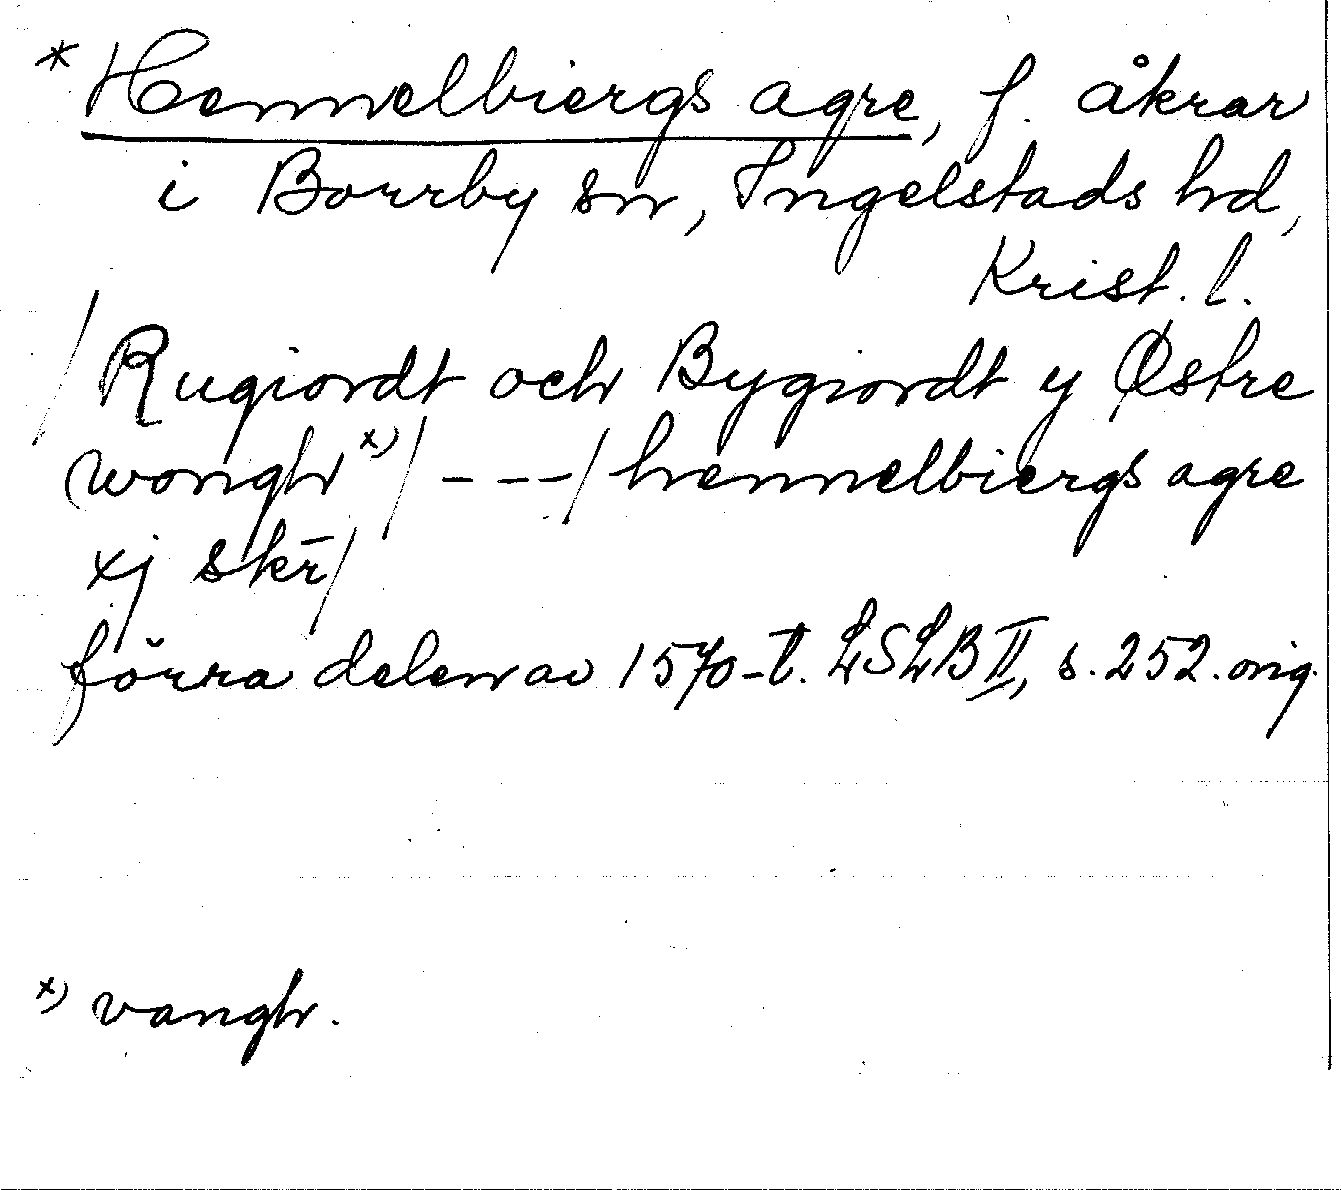 * Hennelbiergs agre, f. åkrar
i Borrby sn, Ingelstads hd,
Krist. l.
/Rugiordt och Bygiordt y Østre
wongh x)/ - - - /hennelbiergs agre
xj skr̄/
förra delen av 1570-t. LSLB II, s. 252. orig.
x) vangh.